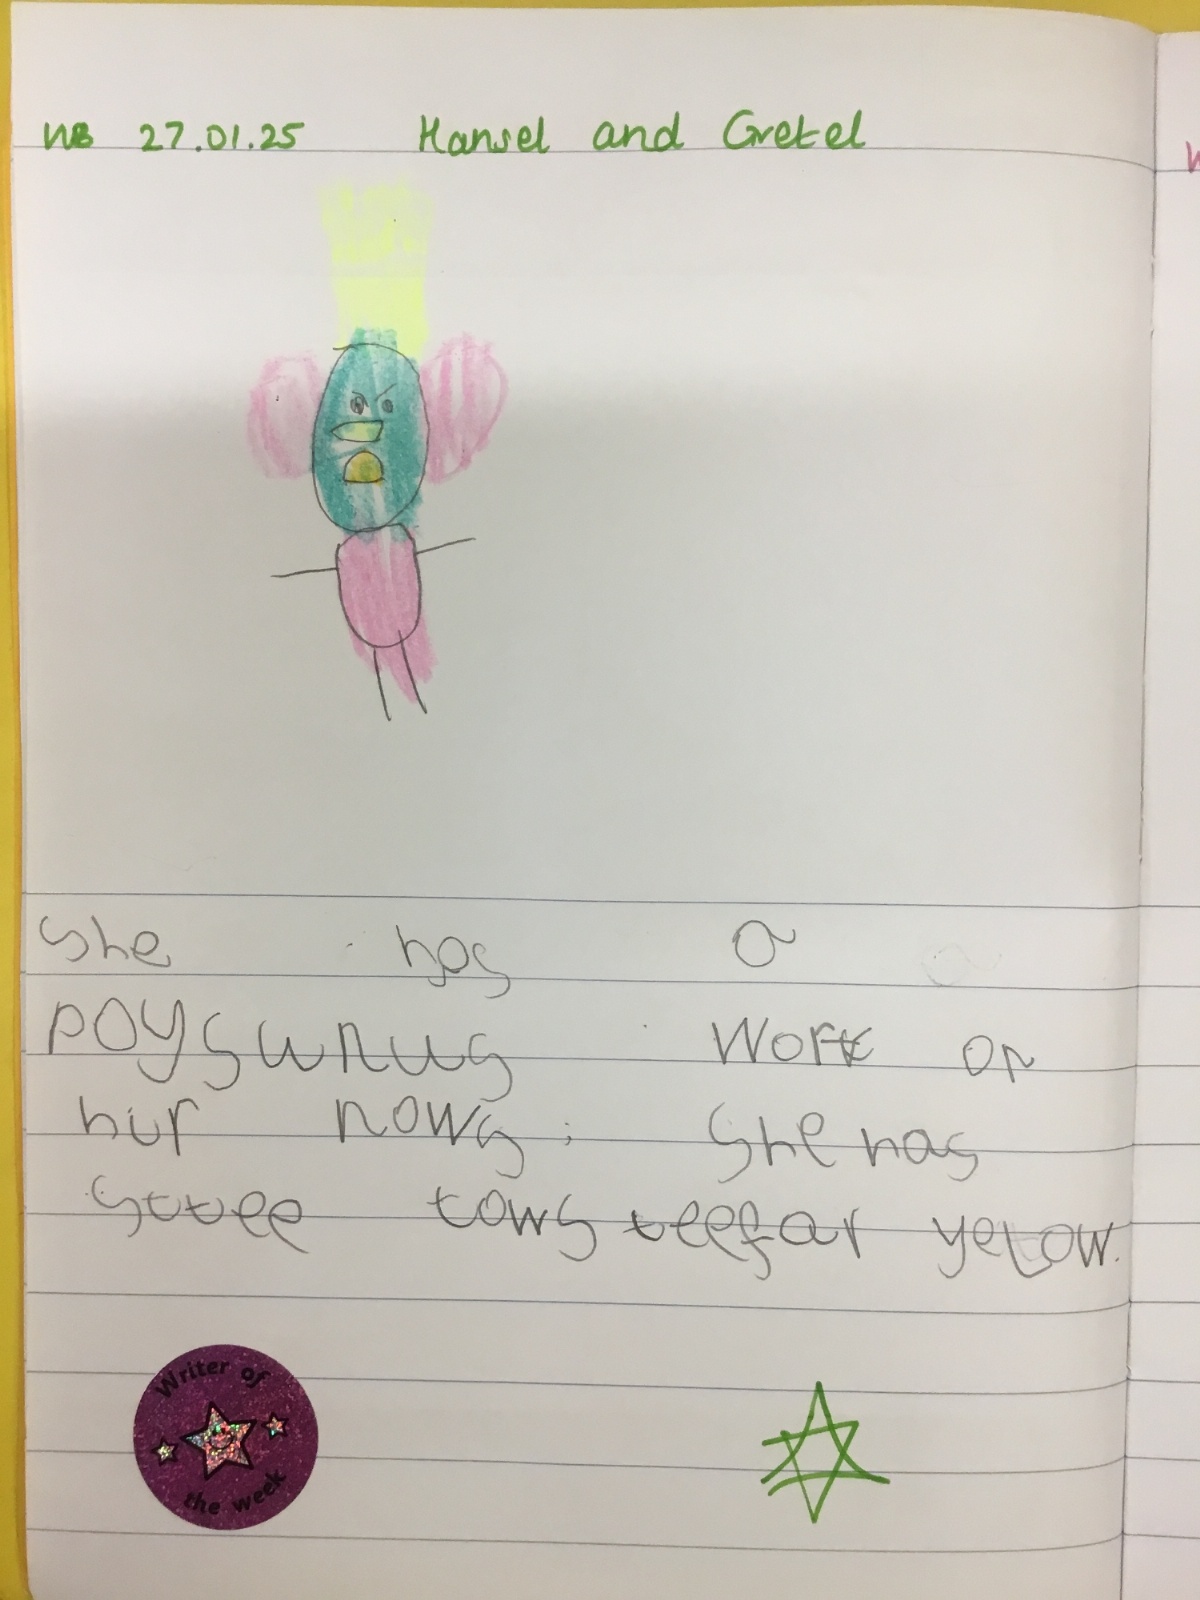 WB 27.01.25 Hansel and Gretel
She has a
poyswnus Wort on
hur nows. She has
sttee tows teefar yelow.
Writer of
the week